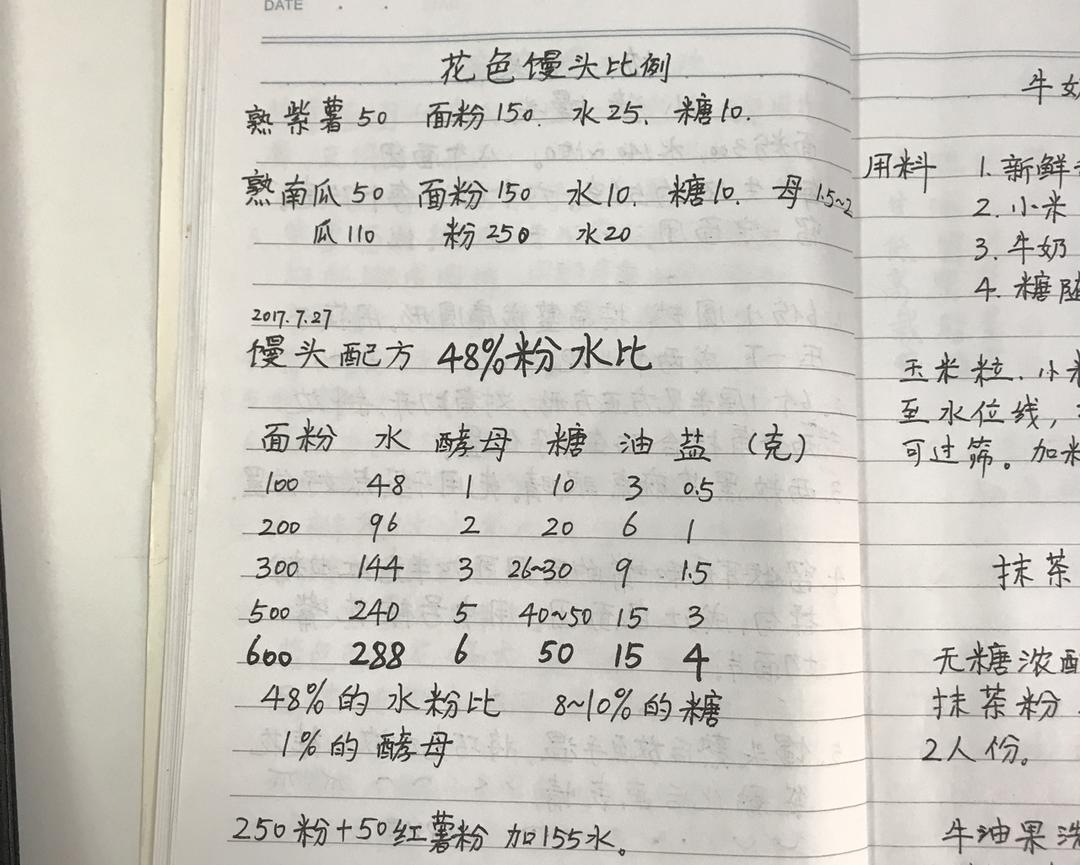 DATE
花色馒头比例
熟紫薯50 面粉150. 水25. 糖10.
熟南瓜50 面粉150 水10. 糖10. 母1.5~2
瓜110 粉250 水20
2017.7.27
馒头配方 48%粉水比
面粉 水 酵母 糖 油 盐 (克)
100 48 1 10 3 0.5
200 96 2 20 6 1
300 144 3 26~30 9 1.5
500 240 5 40~50 15 3
600 288 6 50 15 4
48%的水粉比 8~10%的糖
1%的酵母
250粉+50红薯粉 加155水。
牛奶
用料 1. 新鲜
2. 小米
3. 牛奶
4. 糖随
玉米粒. 小米
至水位线,
可过筛。加米
抹茶
无糖浓
抹茶粉
2人份。
牛油果